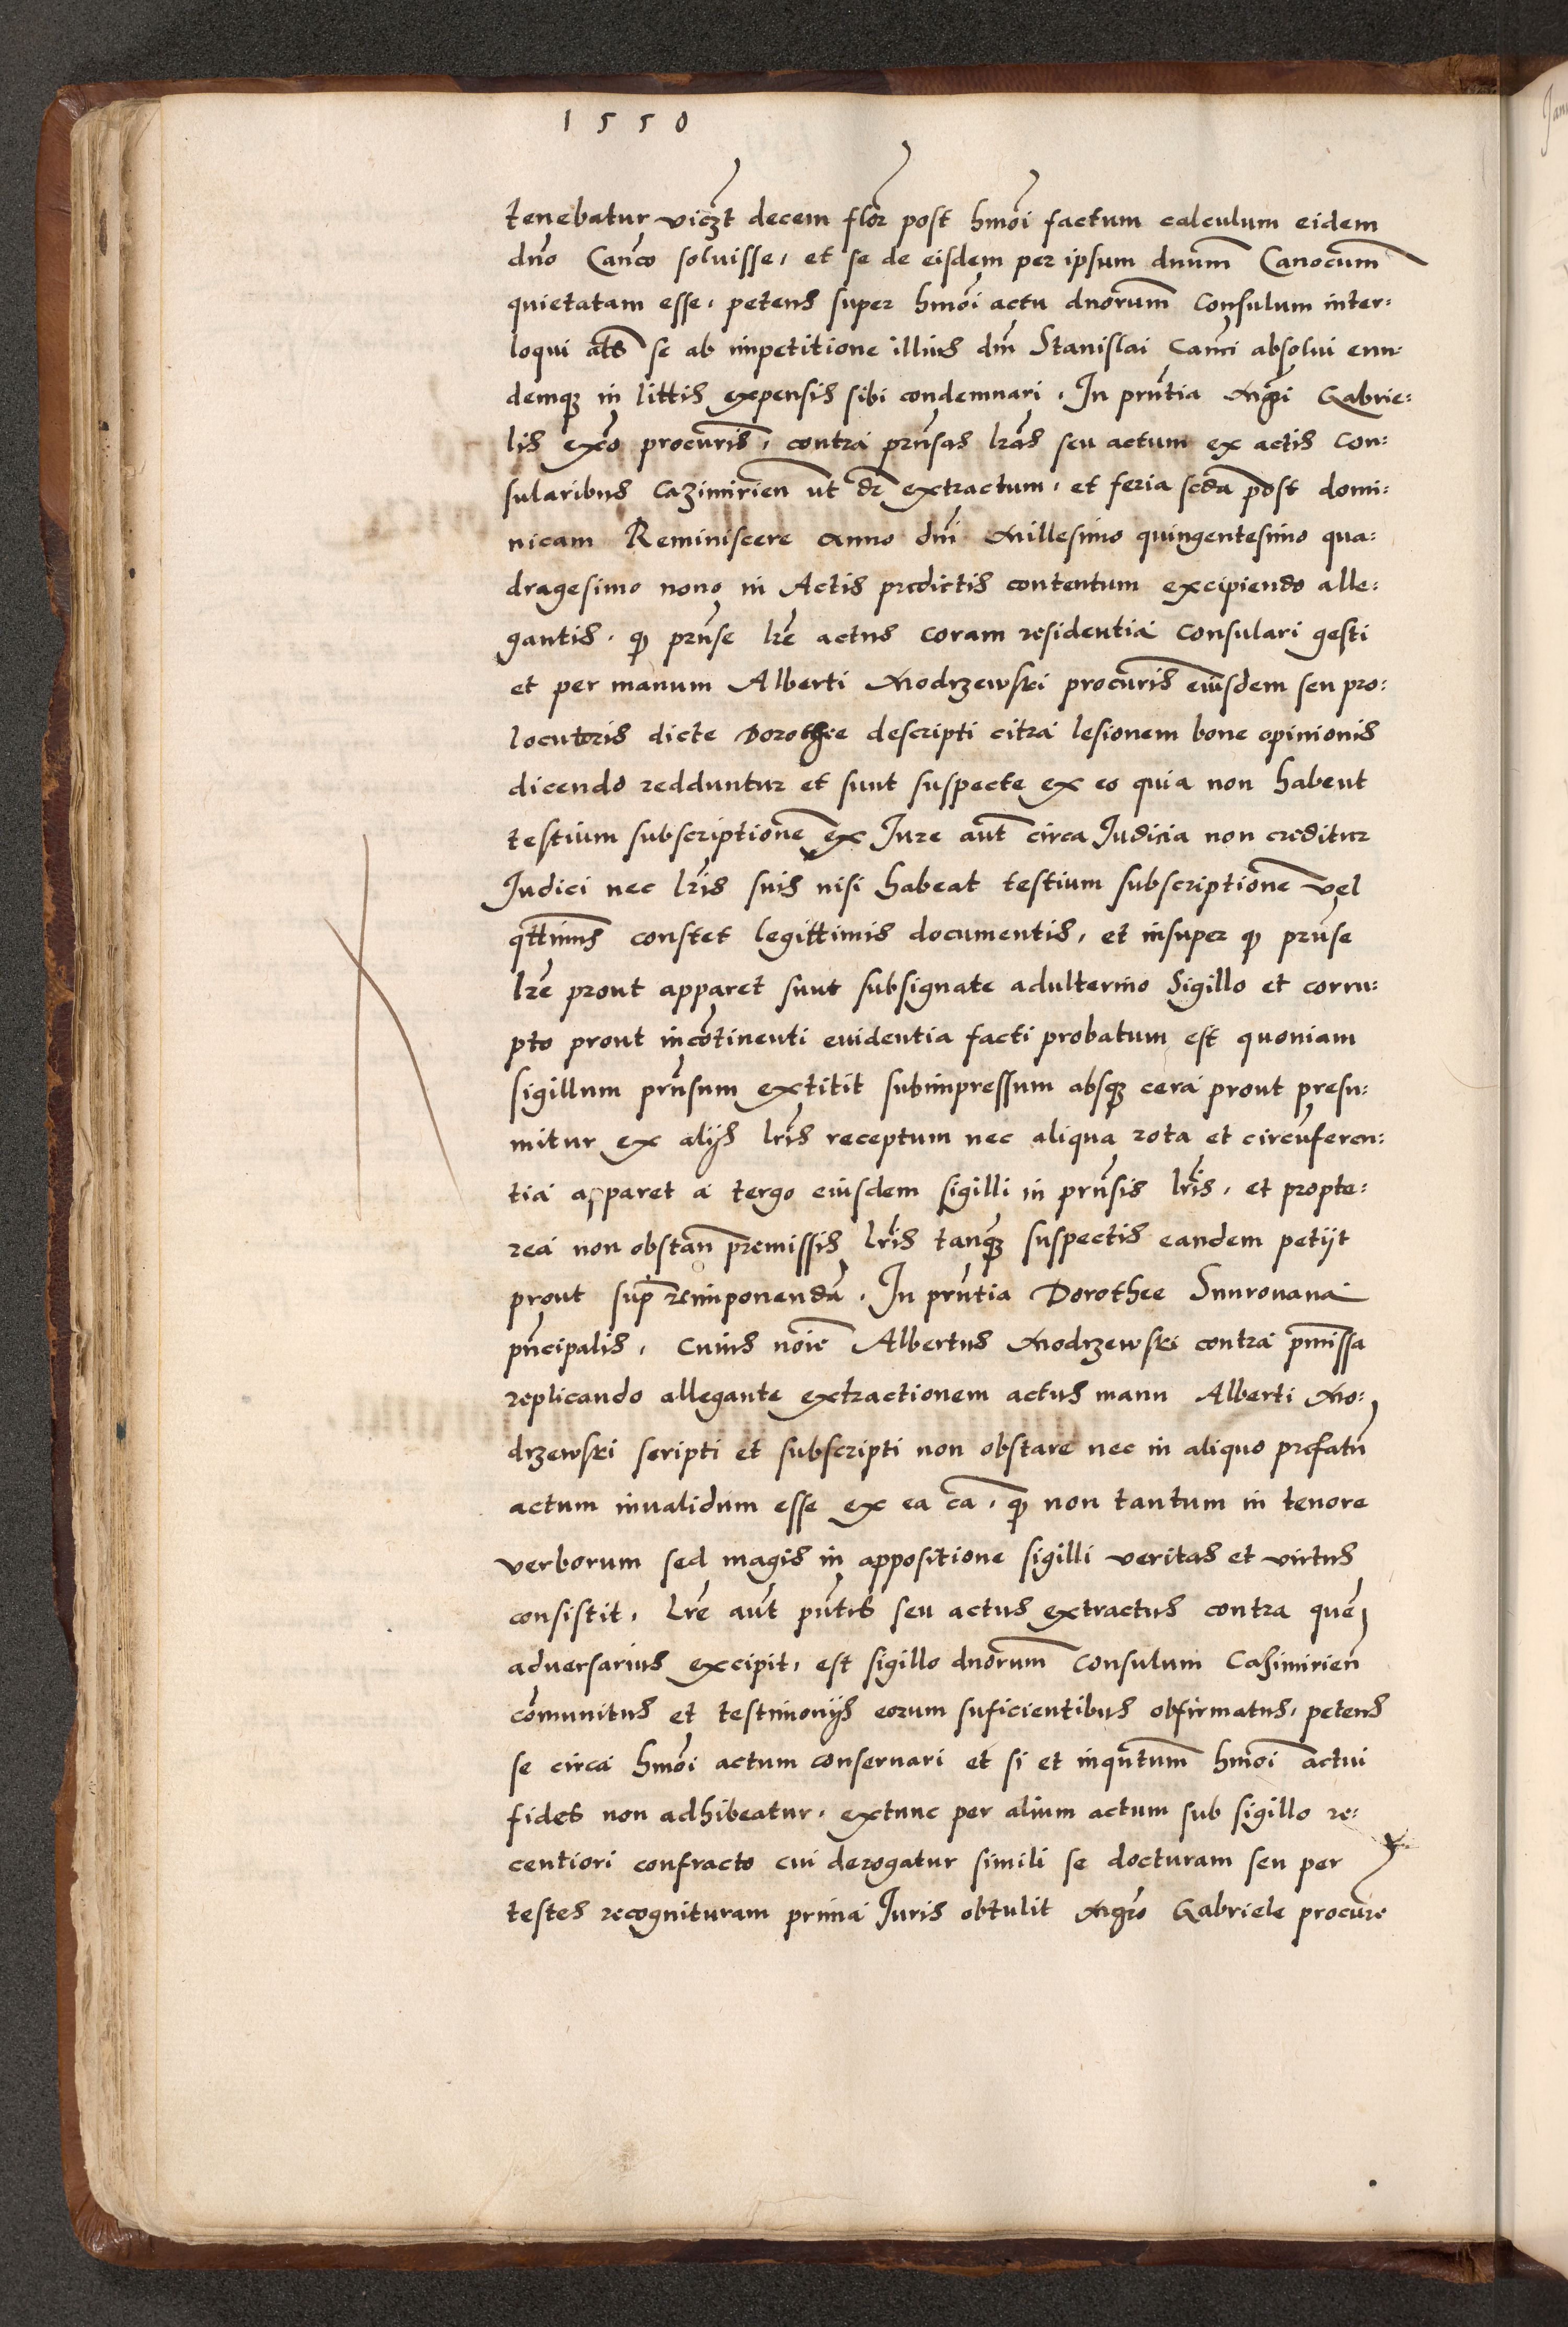 1550
tenebatur viczt decem flor post hmoi factum calculum eidem
dno Canco soluisse, et se de eisdem per ipsum dnum Canocum
quietatam esse, petens super hmoi actu dnorum Consulum inter:
loqui atts se ab impetitione illius dni Stanislai Canci absolui eun
demq in littis expensis sibi condemnari. In prntia Mgri Gabrie:
lis exco procuris, contra prnsas lras seu actum ex actis Con:
sularibus Cazimirien ut dr extractum, et feria scda post domi:
nicam Reminiscere Anno dni Millesimo quingentesimo qua:
dragesimo nono in Actis predictis contentum excipiendo alle:
gantis. q prnse lre actus coram residentia Consulari gesti
et per manum Alberti Modrzewski procuris eiusdem seu pro:
locutoris dicte Dorothee descripti citra lesionem bone opinionis
dicendo redduntur et sunt suspecte ex eo quia non habent
testium subscriptione ex Iure aut circa Iudicia non creditur
Iudici nec lris suis nisi habeat testium subscriptione vel
qttinus constet legittimis documentis, et insuper q prnse
lre prout apparet sunt subsignate adulterino Sigillo et corru:
pto prout incotinenti euidentia facti probatum est quoniam
sigillum prnsum extitit subimpressum absq cera prout presu:
mitur ex alijs lris receptum nec aliqua rota et circuferen:
tia apparet a tergo eiusdem sigilli in prnsis lris, et propte:
rea non obstan premissis lris tanq suspectis eandem petijt
prout sup reimponenda. In prntia Dorothee Snurouana
pncipalis, Cuius noie Albertus Modrzewski contra pmissa
replicando allegante extractionem actus manu Alberti Mo:
drzewski scripti et subscripti non obstare nec in aliquo prefatu
actum inualidum esse ex ea ca, q non tantum in tenore
verborum sed magis in appositione sigilli veritas et virtus
consistit, lre aut pntes seu actus extractus contra que
aduersarius excipit, est sigillo dnorum Consulum Cazimirien
comunitus et testimonijs eorum suficientibus obfirmatus, petens
se circa hmoi actum conseruari et si et inquntum hmoi actui
fides non adhibeatur, extunc per alium actum sub sigillo re:
centiori confracto cui derogatur simili se docturam seu per
testes recognituram prima Iuris obtulit Mgro Gabriele procure